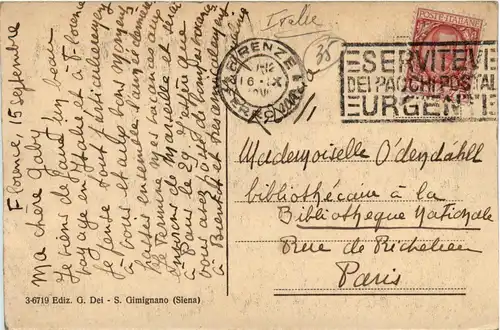 Italie
35
POSTE ITALIANE
FIRENZE
FERROVIA
SERVITEVI
DEI PACCHI POSTALI
URGENTI
Florence 15 Septembre
Ma chère Gaby
Je viens de faire un beau
voyage en Italie et à Florence
Je pense tout particulièrement
à vous et aux bons moments
passés ensemble l'an dernier
Je termine mes vacances aux
environs de Marseille et serai
à Paris le 29. J'espère que
vous avez passé de bonnes vacances
à Bientôt et
Mademoiselle Odendahll
bibliothécaire à la
Bibliothèque Nationale
Rue de Richelieu
Paris
3-6719 Ediz. G. Dei - S. Gimignano (Siena)